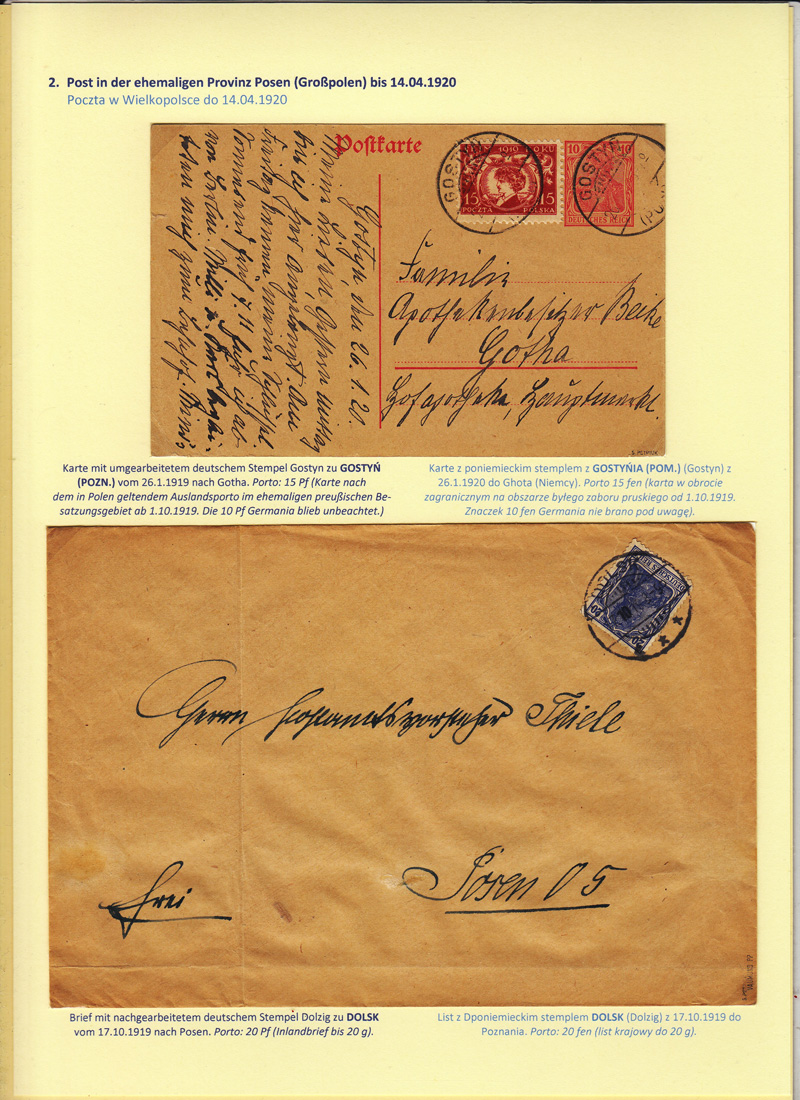 2. Post in der ehemaligen Provinz Posen (Großpolen) bis 14.04.1920
Poczta w Wielkopolsce do 14.04.1920
Postkarte
1919 ROKU
15 15
POCZTA POLSKA
10 10
DEUTSCHES REICH
GOSTYN
GOSTYN
Gostyn, den 26.1.20.
Familie
Apothekenbesitzer Beike
Gotha
Hofapotheke, Hauptmarkt.
Karte mit umgearbeitetem deutschem Stempel Gostyn zu GOSTYŃ
(POZN.) vom 26.1.1919 nach Gotha. Porto: 15 Pf (Karte nach
dem in Polen geltendem Auslandsporto im ehemaligen preußischen Be-
satzungsgebiet ab 1.10.1919. Die 10 Pf Germania blieb unbeachtet.)
Karte z poniemieckim stemplem z GOSTYŃIA (POM.) (Gostyn) z
26.1.1920 do Ghota (Niemcy). Porto 15 fen (karta w obrocie
zagranicznym na obszarze byłego zaboru pruskiego od 1.10.1919.
Znaczek 10 fen Germania nie brano pod uwagę).
Herrn Postamtsvorsteher Thiele
frei
Posen O 5
Brief mit nachgearbeitetem deutschem Stempel Dolzig zu DOLSK
vom 17.10.1919 nach Posen. Porto: 20 Pf (Inlandbrief bis 20 g).
List z Dponiemieckim stemplem DOLSK (Dolzig) z 17.10.1919 do
Poznania. Porto: 20 fen (list krajowy do 20 g).